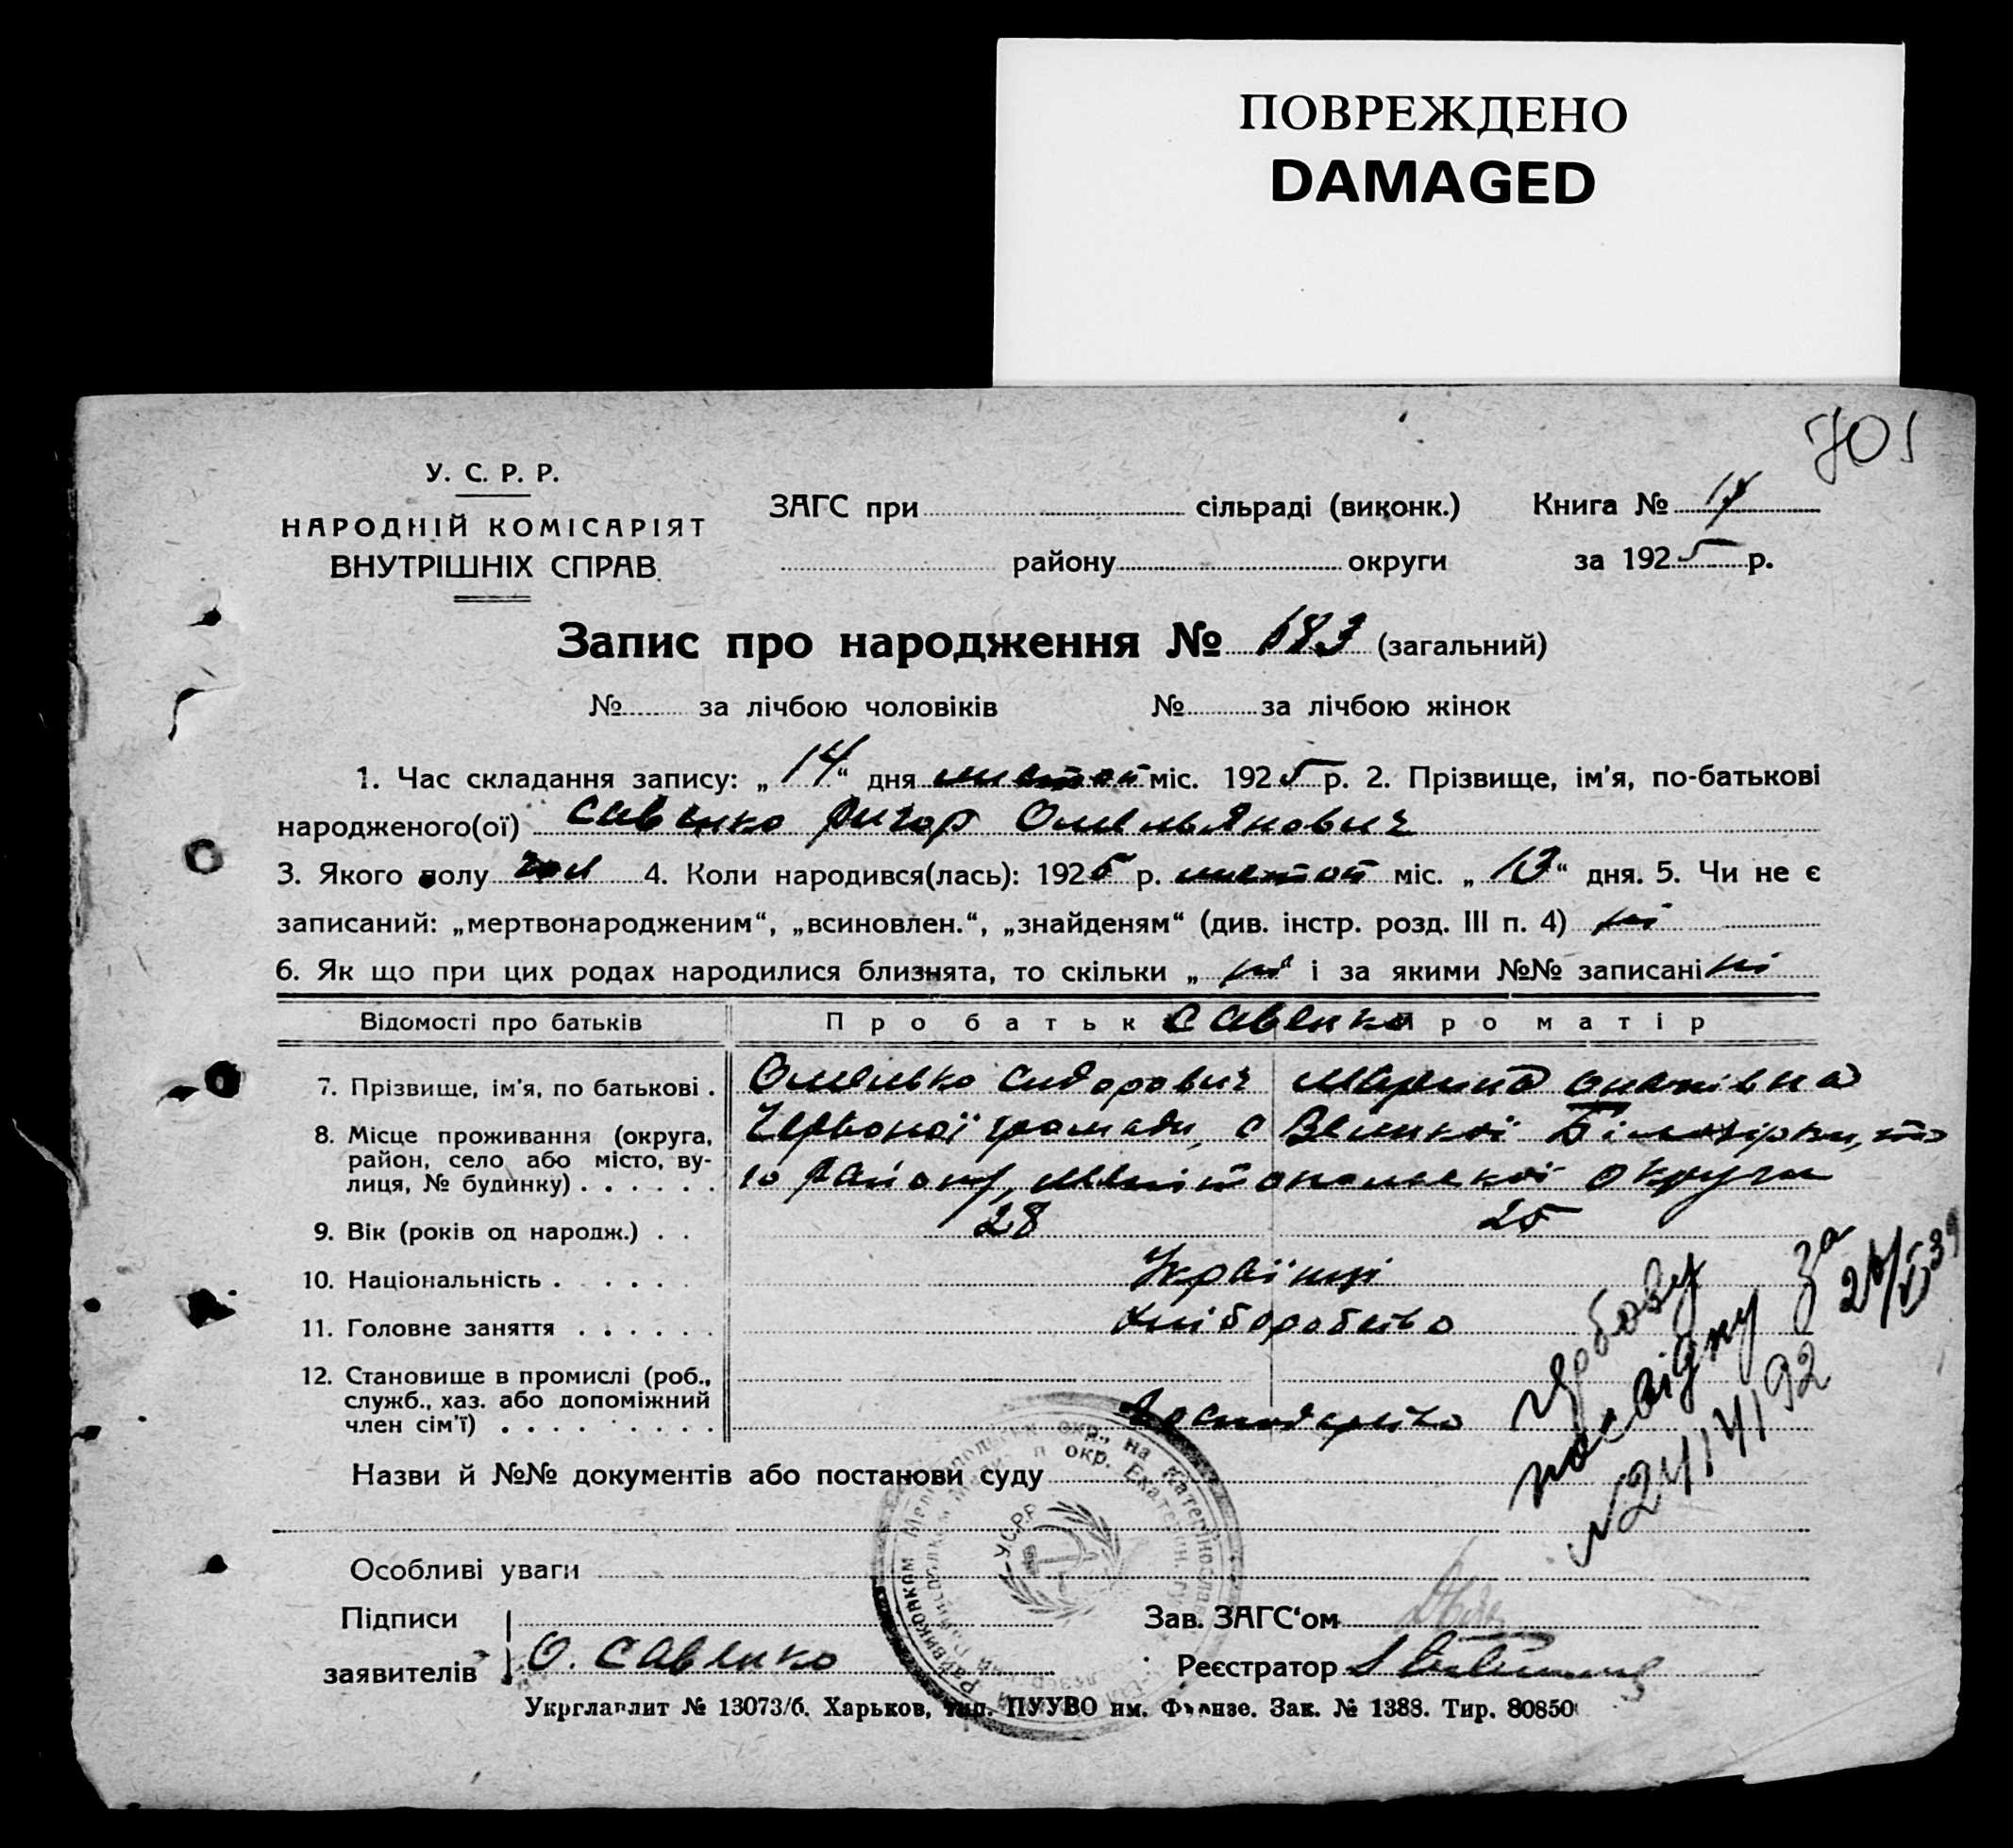 ПОВРЕЖДЕНО
DAMAGED
701
У. С. Р. Р.
НАРОДНІЙ КОМІСАРІЯТ
ВНУТРІШНІХ СПРАВ.
ЗАГС при сільраді (виконк.) Книга № 17
району округи за 1925 р.
Запис про народження № 683 (загальний)
№ за лічбою чоловіків № за лічбою жінок
1. Час складання запису: „14“ дня листоп міс. 1925 р. 2. Прізвище, ім'я, по-батькові
народженого(ої) Савенко Григор Омельянович
3. Якого полу чол 4. Коли народився(лась): 1925 р. листоп міс. „13“ дня. 5. Чи не є
записаний: „мертвонародженим“, „всиновлен.“, „знайденям“ (див. інстр. розд. III п. 4) ні
6. Як що при цих родах народилися близнята, то скільки „ні“ і за якими №№ записані ні
Відомості про батьків Про батьк Савенко Про матір
7. Прізвище, ім'я, по батькові . Омелько Сидорович Марина
8. Місце проживання (округа, район, село або місто, вулиця, № будинку) . . . . . . Червоної громади, с Великої Білозірки, то
го району, Мелітопольскої округи
9. Вік (років од народж.) . . 28 25
10. Національність . . . . . Українці
11. Головне заняття . . . . . . Хліборобство
12. Становище в промислі (роб., служб., хаз. або допоміжний член сім'ї) . . . . . . . . Господарство
Назви й №№ документів або постанови суду
Особливі уваги
Підписи
заявителів О. Савенко
Зав. ЗАГС'ом
Реєстратор
УСРР
Укрглавлит № 13073/б. Харьков, тип. ПУУВО им. Фрунзе. Зак. № 1388. Тир. 80850